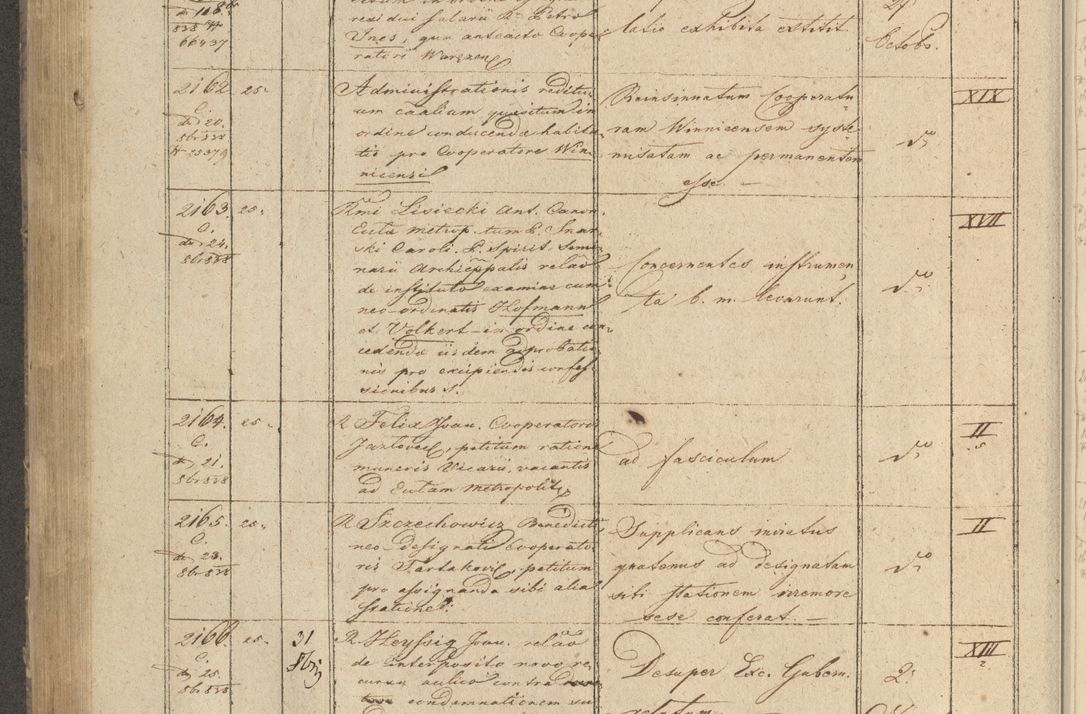 residui salarii R. Petro
Ines, qua anteacto Coope
ratori Warszen
latio exhibita extitit
Octobr.
66437
2162 25.
C.
de 20.
8br 838
Administrationis reditu
um caalium quaesitum in
ordine conducendae habita
tio pro Cooperatore Win
nicensi
Reinsinnatum Cooperatu
ram Winnicensem syste
misatam ac permanentem
esse. —
XIX
2163. 25.
C.
de 24.
8br 838
Rmi Lisiecki Ant. Canon.
Ecclae Metrop. tum P. Snar
ski Caroli. P. Spirit. Semi
narii Archieppalis relao
de instituto examine cum
neo-ordinatis Hofmann
et Volkert in ordine con
cedendae iisdem approbatio
nis pro excipiendis confes
sionibus s.
Concernentes instrumen
ta b. m. levarunt.
do
XVII
2164. 25.
C.
de 21.
8br 838
R Felix Joan. Cooperatoris
Jazlovec, petitum ratione
muneris Vicarii, vacantis
ad Ecclam Metropolit.
ad fasciculum
do
II
5
2165. 25.
C.
de 23.
8br 838
R Szczechowicz Benedicti
neo-designati Cooperato
ris Tartakovi, petitum
pro assignanda sibi alia
statione.
Supplicans iniatus
quatenus ad designatam
sibi stationem irremore
sese conferat. —
do
II
2166. 25.
C.
de 25.
8br 838
31
8bris
R Heyssig Joan. relao
de interposito novo re
cursu aulico contra
condemnationem su
Desuper Exc. Gubern.
relatum
2.
XIII
2